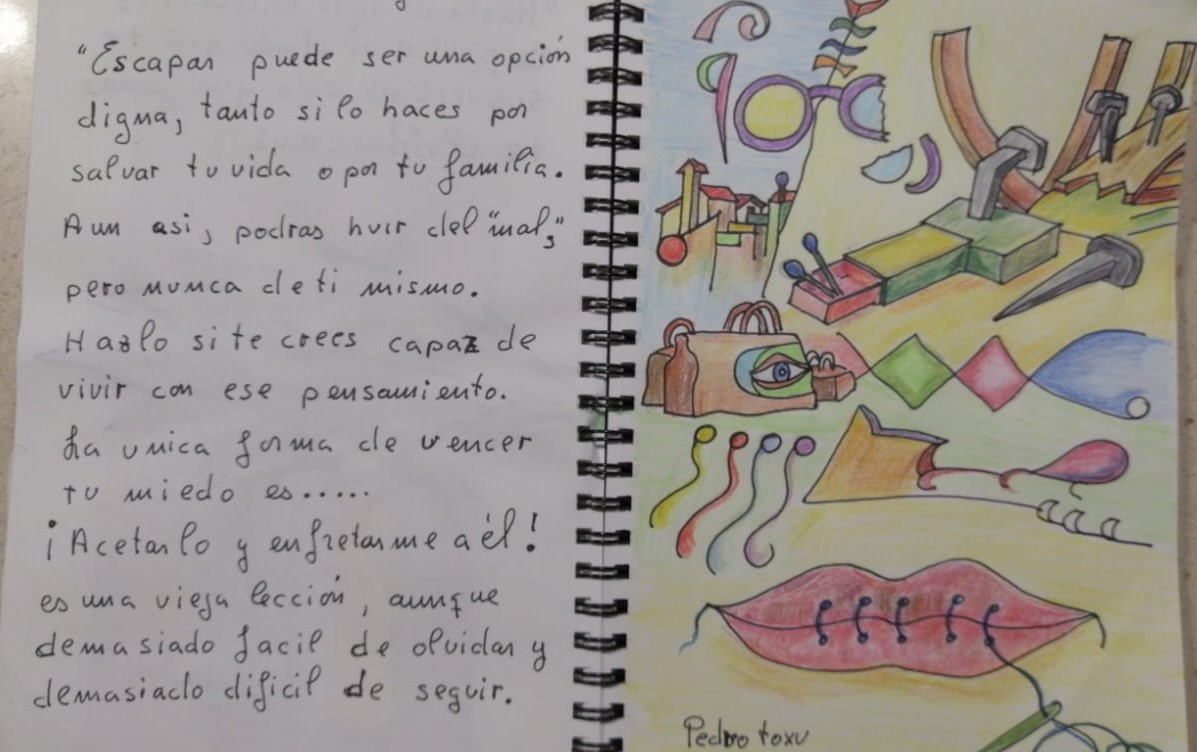 "Escapar puede ser una opción
digna, tanto si lo haces por
salvar tu vida o por tu familia.
Aun asi, podras huir del "mal",
pero nunca de ti mismo.
Hazlo si te crees capaz de
vivir con ese pensamiento.
La unica forma de vencer
tu miedo es.....
¡Acetarlo y enfretarme a él!
es una vieja lección, aunque
demasiado facil de olvidar y
demasiado dificil de seguir.
Pedro toxu